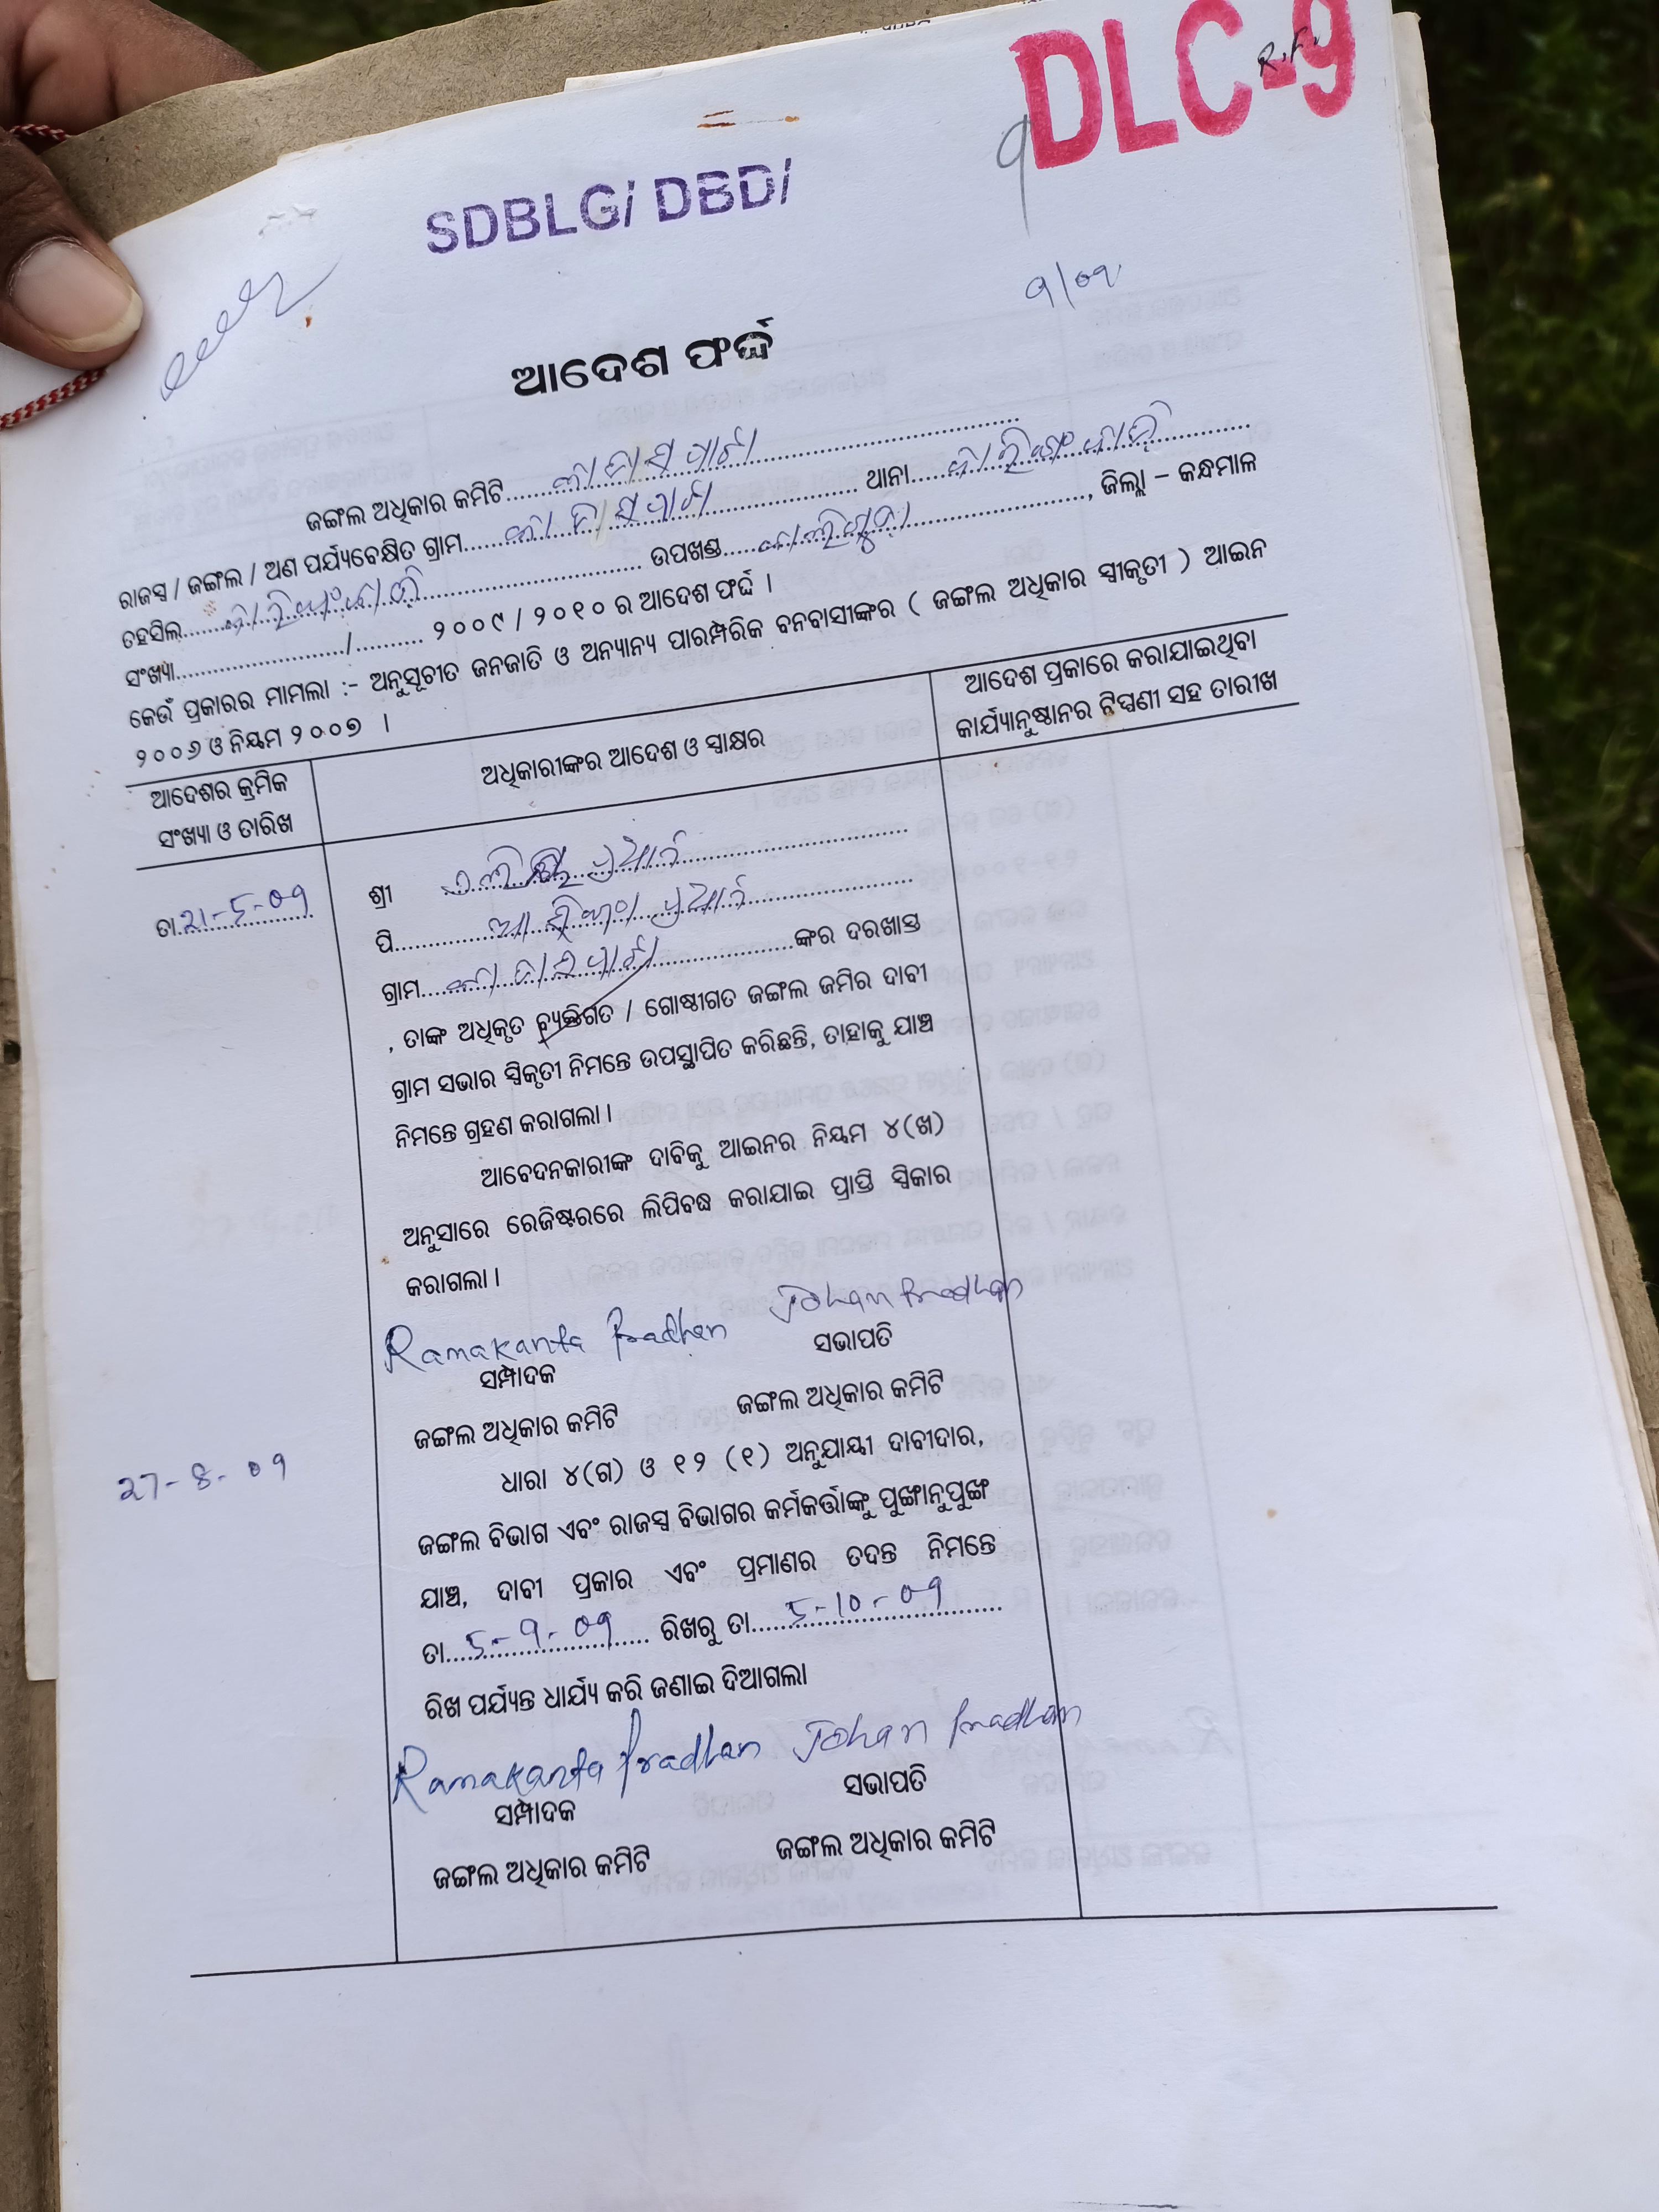 DLC-9
R.F.
SDBLG/ DBD/
9
9/09
ଆଦେଶ ଫର୍ଦ୍ଦ
ଜଙ୍ଗଲ ଅଧିକାର କମିଟି....................
ରାଜସ୍ୱ / ଜଙ୍ଗଲ / ଅଣ ପର୍ଯ୍ୟବେକ୍ଷିତ ଗ୍ରାମ.................... ଥାନା....................
ତହସିଲ.................... ଉପଖଣ୍ଡ...................., ଜିଲ୍ଲା – କନ୍ଧମାଳ
ସଂଖ୍ୟା..................../.......... ୨୦୦୯ / ୨୦୧୦ ର ଆଦେଶ ଫର୍ଦ୍ଦ ।
କେଉଁ ପ୍ରକାରର ମାମଲା :- ଅନୁସୂଚୀତ ଜନଜାତି ଓ ଅନ୍ୟାନ୍ୟ ପାରମ୍ପରିକ ବନବାସୀଙ୍କର ( ଜଙ୍ଗଲ ଅଧିକାର ସ୍ୱୀକୃତୀ ) ଆଇନ
୨୦୦୬ ଓ ନିୟମ ୨୦୦୭ ।
ଆଦେଶର କ୍ରମିକ
ସଂଖ୍ୟା ଓ ତାରିଖ
ଅଧିକାରୀଙ୍କର ଆଦେଶ ଓ ସ୍ୱାକ୍ଷର
ଆଦେଶ ପ୍ରକାରେ କରାଯାଇଥିବା
କାର୍ଯ୍ୟାନୁଷ୍ଠାନର ଟିପ୍ପଣୀ ସହ ତାରୀଖ
ତା.21-5-09
ଶ୍ରୀ .................... ପ୍ରଧାନ
ପି.................... ପ୍ରଧାନ
ଗ୍ରାମ....................ଙ୍କର ଦରଖାସ୍ତ
, ତାଙ୍କ ଅଧିକୃତ ବ୍ୟକ୍ତିଗତ / ଗୋଷ୍ଠୀଗତ ଜଙ୍ଗଲ ଜମିର ଦାବୀ
ଗ୍ରାମ ସଭାର ସ୍ୱିକୃତୀ ନିମନ୍ତେ ଉପସ୍ଥାପିତ କରିଛନ୍ତି, ତାହାକୁ ଯାଞ୍ଚ
ନିମନ୍ତେ ଗ୍ରହଣ କରାଗଲା ।
ଆବେଦନକାରୀଙ୍କ ଦାବିକୁ ଆଇନର ନିୟମ ୪(ଖ)
ଅନୁସାରେ ରେଜିଷ୍ଟରରେ ଲିପିବଦ୍ଧ କରାଯାଇ ପ୍ରାପ୍ତି ସ୍ୱିକାର
କରାଗଲା ।
Ramakanta Pradhan Johan Pradhan
ସମ୍ପାଦକ ସଭାପତି
ଜଙ୍ଗଲ ଅଧିକାର କମିଟି ଜଙ୍ଗଲ ଅଧିକାର କମିଟି
27-8-09
ଧାରା ୪(ଗ) ଓ ୧୨ (୧) ଅନୁଯାୟୀ ଦାବୀଦାର,
ଜଙ୍ଗଲ ବିଭାଗ ଏବଂ ରାଜସ୍ୱ ବିଭାଗର କର୍ମକର୍ତ୍ତାଙ୍କୁ ପୁଙ୍ଖାନୁପୁଙ୍ଖ
ଯାଞ୍ଚ, ଦାବୀ ପ୍ରକାର ଏବଂ ପ୍ରମାଣର ତଦନ୍ତ ନିମନ୍ତେ
ତା....5-9-09.... ରିଖରୁ ତା....5-10-09....
ରିଖ ପର୍ଯ୍ୟନ୍ତ ଧାର୍ଯ୍ୟ କରି ଜଣାଇ ଦିଆଗଲା
Ramakanta Pradhan Johan Pradhan
ସମ୍ପାଦକ ସଭାପତି
ଜଙ୍ଗଲ ଅଧିକାର କମିଟି ଜଙ୍ଗଲ ଅଧିକାର କମିଟି